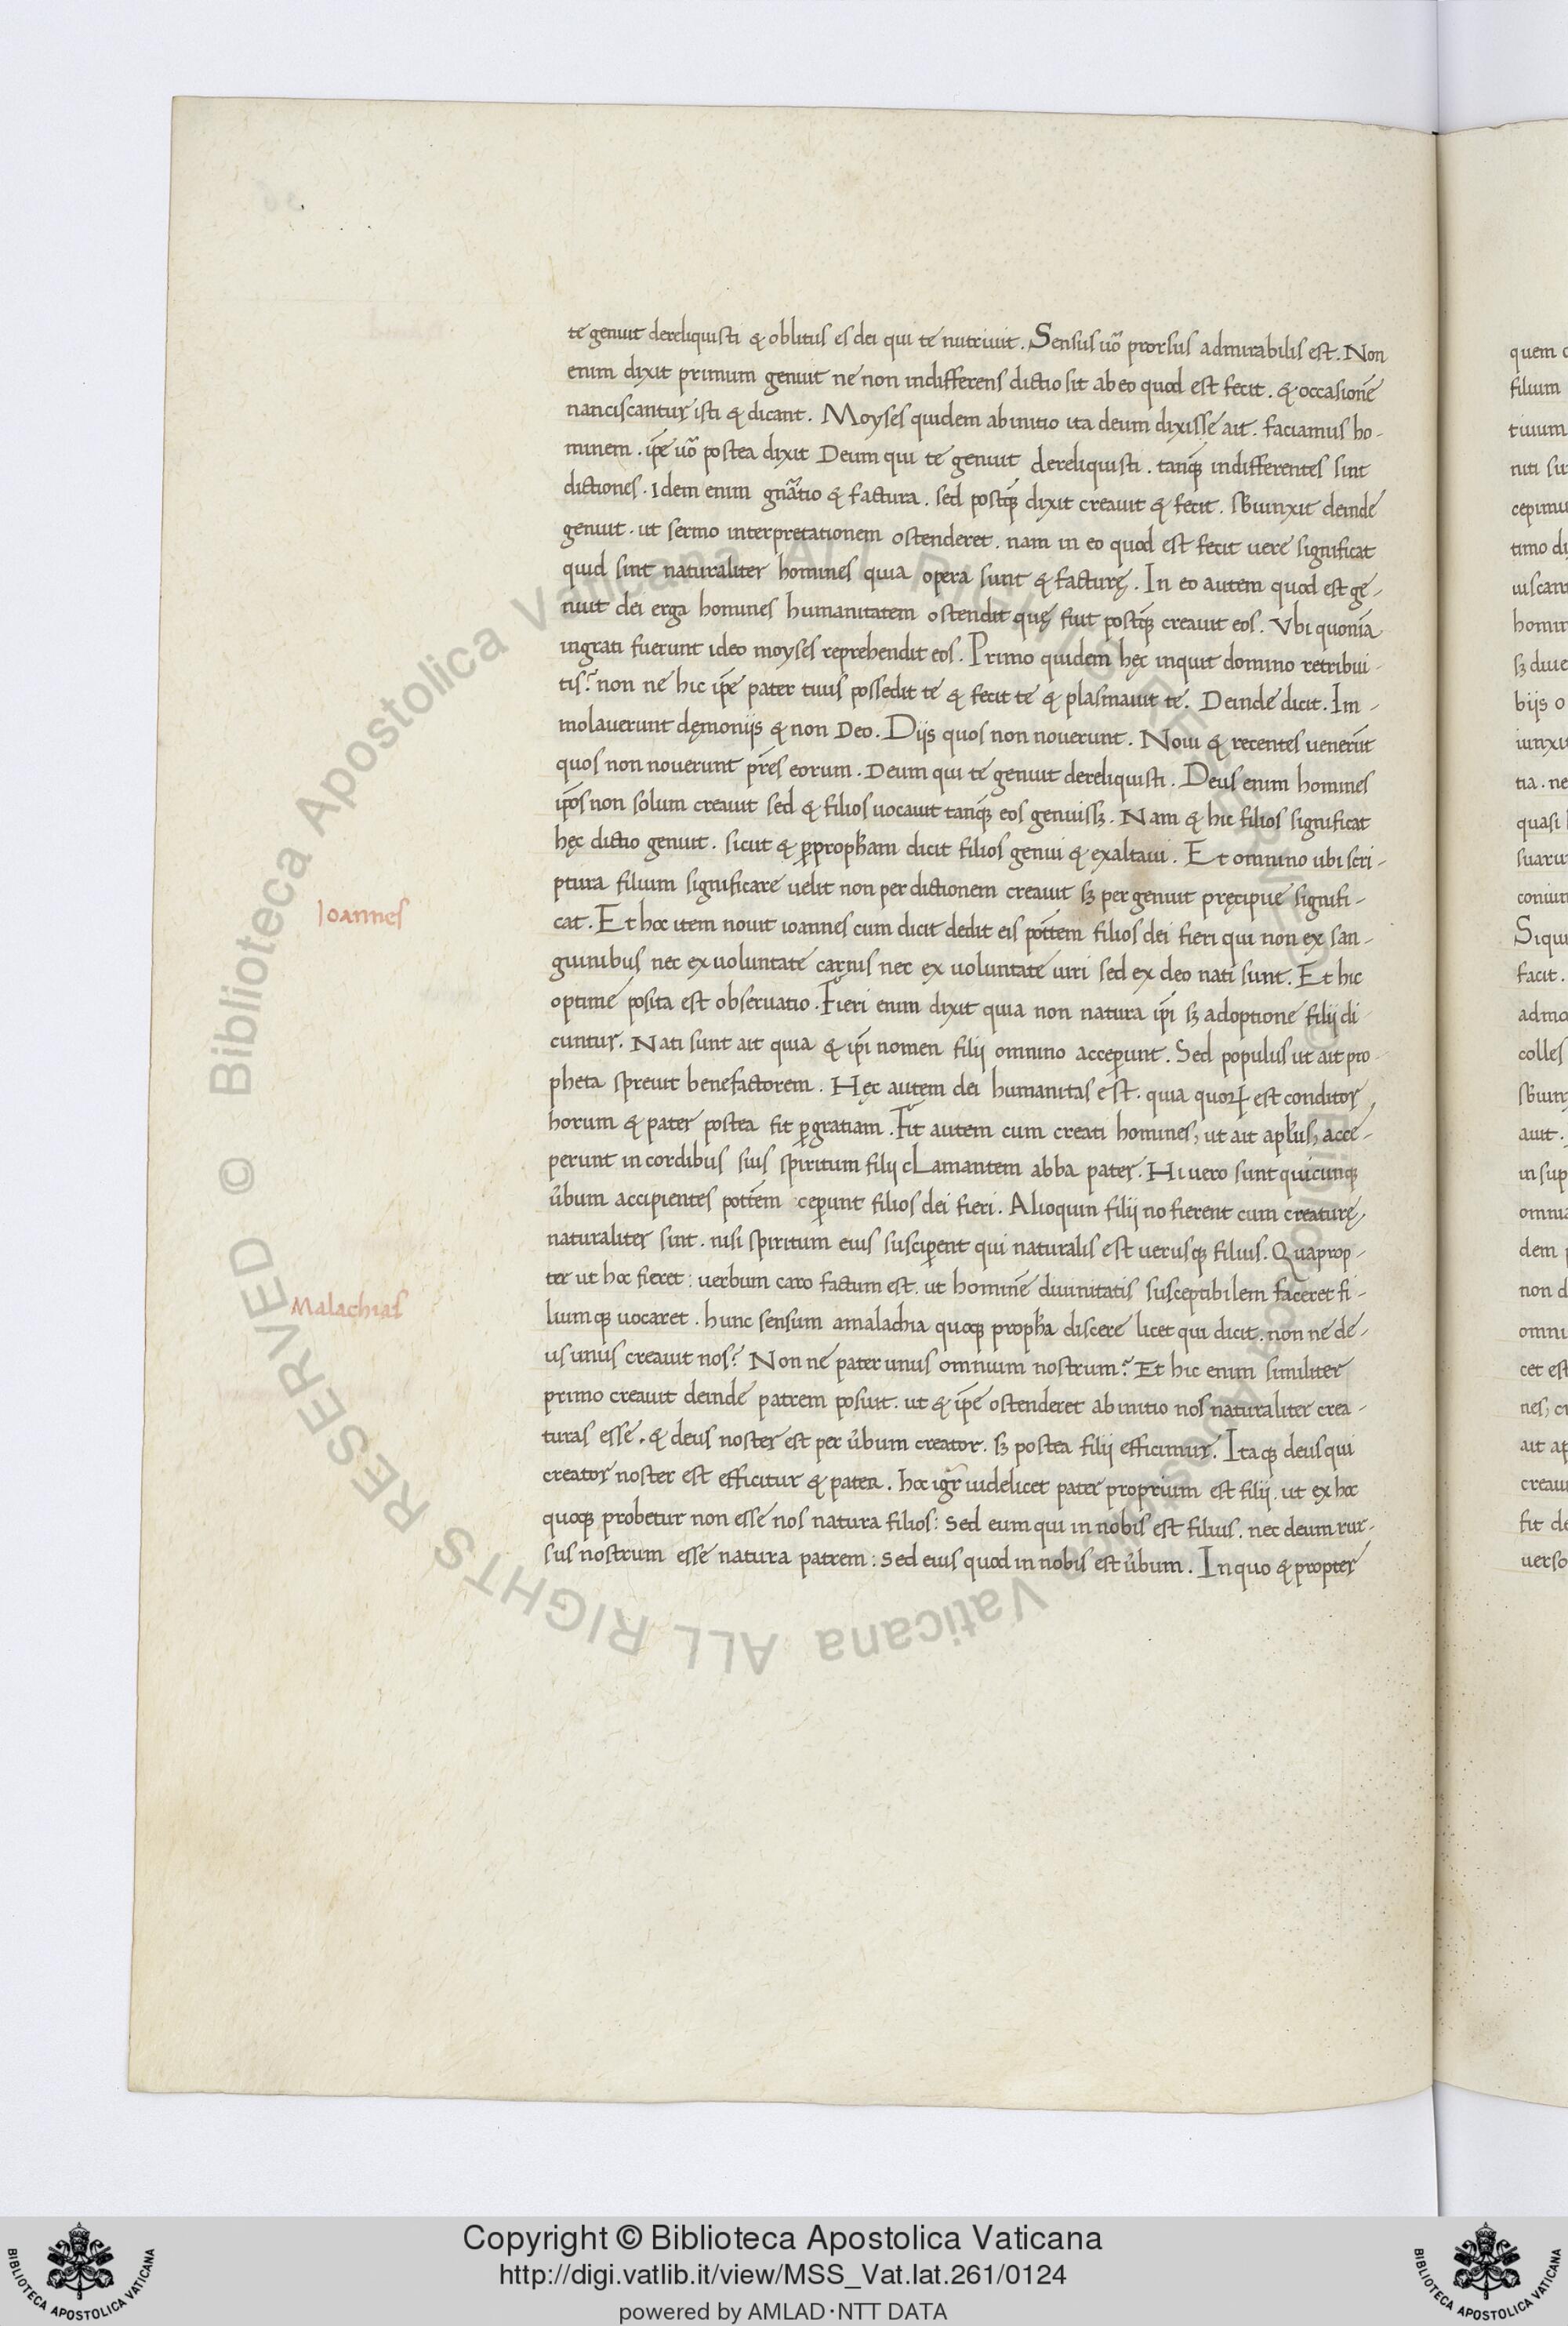 te genuit dereliquisti & oblitus es dei qui te nutriuit. Sensus uo᷃ prorsus admirabilis est. Non
enim dixit primum genuit ne non indifferens dictio sit ab eo quod est fecit. & occasionē
nanciscantur isti & dicant. Moyses quidem ab initio ita deum dixisse ait. faciamus ho-
minem. ip̄e uo᷃ postea dixit Deum qui te genuit dereliquisti. tanq̄ indifferentes sint
dictiones. idem enim gn̄atio & factura. sed postq̄ dixit creauit & fecit. sbiunxit deinde
genuit. ut sermo interpretationem ostenderet. nam in eo quod est fecit uere significat
quid sint naturaliter homines quia opera sunt & facturę. In eo autem quod est ge-
nuit dei erga homines humanitatem ostendit quę fiut postq̄ creauit eos. Vbi quoniā
ingrati fuerunt ideo moyses reprehendit eos. Primo quidem hęc inquit domino retribui-
tis? non ne hic ip̄e pater tuus possedit te & fecit te & plasmauit te. Deinde dicit. Im-
molauerunt dęmoniis & non Deo. Diis quos non nouerunt. Noui & recentes uenerūt
quos non nouerunt pr̄es eorum. Deum qui te genuit dereliquisti. Deus enim homines
ip̄os non solum creauit sed & filios uocauit tanq̄ eos genuissꝫ. Nam & hic filios significat
hęc dictio genuit. sicut & ꝑ propħam dicit filios genui & exaltaui. Et omnino ubi scri-
ptura filium significare uelit non per dictionem creauit sꝫ per genuit pręcipue signifi-
cat. Et hoc item nouit ioannes cum dicit dedit eis pott̄em filios dei fieri qui non ex san-
guinibus nec ex uoluntate carnis nec ex uoluntate uiri sed ex deo nati sunt. Et hic
optime posita est obseruatio. Fieri enim dixit quia non natura ip̄i sꝫ adoptione filii di
cuntur. Nati sunt ait quia & ip̄i nomen filii omnino acceperunt. Sed populus ut ait pro-
pheta spreuit benefactorem. Hęc autem dei humanitas est. quia quoꝝ est conditor
horum & pater postea fit ꝑ gratiam. Fit autem cum creati homines, ut ait apłus, acce-
perunt in cordibus suis spiritum filii clamantem abba pater. Hi uero sunt quicunq̄
ūbum accipientes pott̄em ceperunt filios dei fieri. Alioquin filii no fierent cum creaturę
naturaliter sint. nisi spiritum eius susciperent qui naturalis est uerusq̄ filius. Quaprop-
ter ut hoc fieret: uerbum caro factum est. ut hominē diuinitatis susceptibilem faceret fi-
liumq̄ uocaret. hunc sensum a malachia quoq̄ propħa discere licet qui dicit. non ne de-
us unus creauit nos? Non ne pater unus omnium nostrum? Et hic enim similiter
primo creauit deinde patrem posuit. ut & ip̄e ostenderet ab initio nos naturaliter crea-
turas esse. & deus noster est per ūbum creator. sꝫ postea filii efficimur. Itaq̄ deus qui
creator noster est efficitur & pater. hoc igr̄ uidelicet pater proprium est filii. ut ex hoc
quoq̄ probetur non esse nos natura filios: sed eum qui in nobis est filius. nec deum rur-
sus nostrum esse natura patrem: sed eius quod in nobis est ūbum. In quo & propter
Ioannes
Malachias
quem
filium
tiuum
niti su
cepimu
timo di
uiscan
homin
sꝫ diue
biis o
iunxit
tia. ne
quasi
suaru
coniun
Siqui
facit.
admo
colles
sbiun
auit.
in sup
omnia
dem
non d
omni
cet est
nes, cr
ait ap
creaui
fit de
uerso
© Biblioteca Apostolica Vaticana ALL RIGHTS RESERVED
© Biblioteca Apostolica Vaticana ALL RIGHTS RESERVED
Copyright © Biblioteca Apostolica Vaticana
http://digi.vatlib.it/view/MSS_Vat.lat.261/0124
powered by AMLAD·NTT DATA
BIBLIOTECA APOSTOLICA VATICANA
BIBLIOTECA APOSTOLICA VATICANA